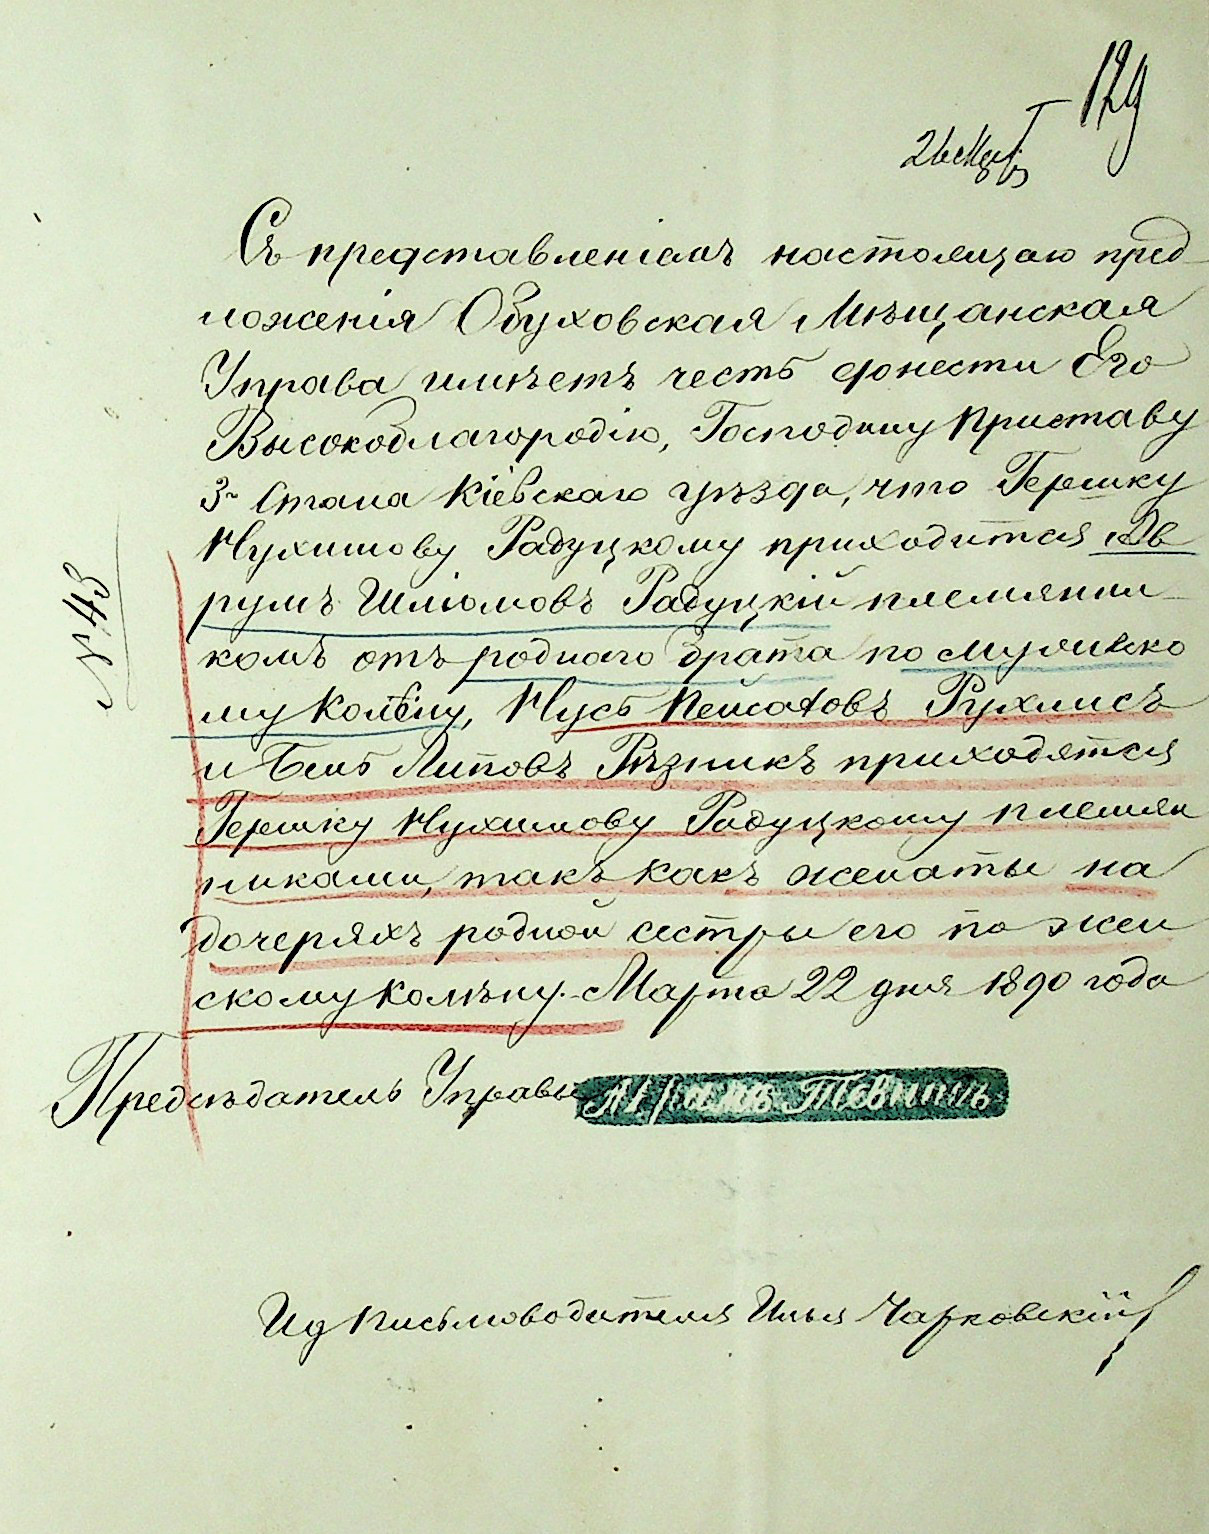 129
26 Март
Съ представленіемъ настоящаго пред-
ложенія Обуховская Мѣщанская
Управа имѣетъ честь донести Его
Высокоблагородію, Господину Приставу
3го Стана Кіевскаго уѣзда, что Гершку
Нухимову Радуцкому приходится Ав
румъ Шліомовъ Радуцкій племянни-
комъ отъ родного брата по мужеско
му колѣну, Нусь Пейсаховъ Рухлисъ
и Бень Липовъ Рѣзникъ приходятся
Гершку Нухимову Радуцкому племян
никами, такъ какъ женаты на
дочеряхъ родной сестры его по жен
скому колѣну. Марта 22 дня 1890 года
№ 43
Предсѣдатель Управы
Ид Письмоводителя Илья Чарковскій